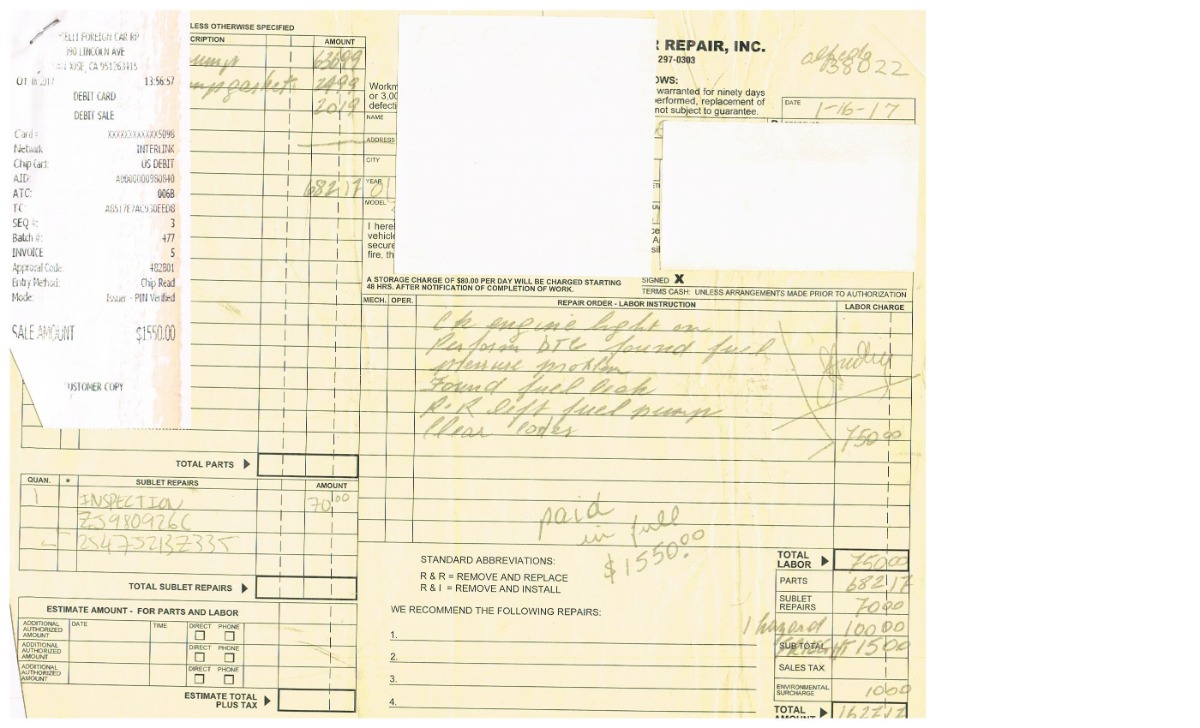 FOREIGN CAR RP
LINCOLN AVE
JOSE, CA 951263415
2017 13:56:57
DEBIT CARD
DEBIT SALE
Card #: XXXXXXXXXXXX5098
Network: INTERLINK
Chip Card: US DEBIT
AID: A0000000980840
ATC: 006B
TC: A8517E7AC930EED8
SEQ #: 3
Batch #: 477
INVOICE 5
Approval Code: 482801
Entry Method: Chip Read
Mode: Issuer - PIN Verified
SALE AMOUNT $1550.00
USTOMER COPY
LESS OTHERWISE SPECIFIED
CRIPTION AMOUNT
63699
gaskets 2499
2019
68217
TOTAL PARTS
QUAN. * SUBLET REPAIRS AMOUNT
1 INSPECTION 70 00
ZS980926C
254752BZ335
TOTAL SUBLET REPAIRS
ESTIMATE AMOUNT - FOR PARTS AND LABOR
ADDITIONAL AUTHORIZED AMOUNT DATE TIME DIRECT PHONE
ADDITIONAL AUTHORIZED AMOUNT DIRECT PHONE
ADDITIONAL AUTHORIZED AMOUNT DIRECT PHONE
ESTIMATE TOTAL
PLUS TAX
R REPAIR, INC.
297-0303
138022
OWS:
Workm warranted for ninety days
or 3,00 erformed, replacement of
defecti not subject to guarantee.
DATE 1-16-17
NAME
ADDRESS
CITY
YEAR 01
MODEL
I here
vehicl
secure
fire, th
A STORAGE CHARGE OF $80.00 PER DAY WILL BE CHARGED STARTING
48 HRS. AFTER NOTIFICATION OF COMPLETION OF WORK.
SIGNED X
TERMS CASH: UNLESS ARRANGEMENTS MADE PRIOR TO AUTHORIZATION
MECH. OPER. REPAIR ORDER - LABOR INSTRUCTION LABOR CHARGE
Ck engine light on
Perform DTC found fuel
pressure problem
Found fuel leak
R+R left fuel pump
Clear codes 750 00
paid
in full
$1550.00
STANDARD ABBREVIATIONS:
R & R = REMOVE AND REPLACE
R & I = REMOVE AND INSTALL
WE RECOMMEND THE FOLLOWING REPAIRS:
1.
2.
3.
4.
TOTAL LABOR 750 00
PARTS 682 17
SUBLET REPAIRS 70 00
1 hazard 100 00
SUB TOTAL FREIGHT 15 00
SALES TAX
ENVIRONMENTAL SURCHARGE 10 00
TOTAL AMOUNT 1627 17